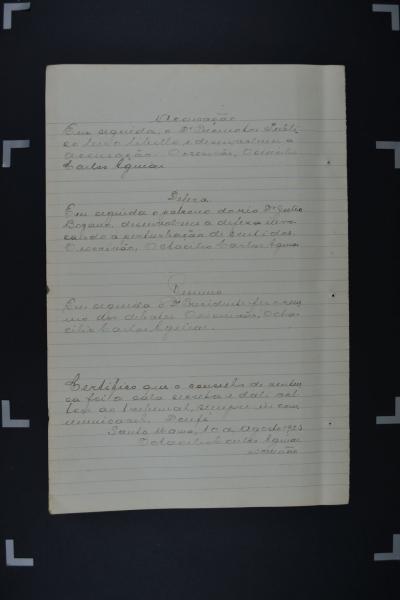 Accusação
Em seguida, o Dr Promotor Publi-
co leu o libello e desenvolveu a
accusação. O escrivão, Octacilio
Carlos Aguiar
Defesa
Em seguida o patrono do réo Dr
desenvolveu a defesa invo-
cando a perturbação de sentidos.
O escrivão, Octacilio Carlos Aguiar
Resumo
Em seguida o Dr Presidente fez o resu-
mo dos debates. O escrivão, Octa-
cilio Carlos Aguiar.
Certifico que o conselho de senten-
ça foi á sala secreta e dali vol-
tou ao tribunal, sempre in com-
municavel. Dou fé.
Santa Maria, 10 de Agosto 19
Octacilio Carlos Aguiar
escrivão